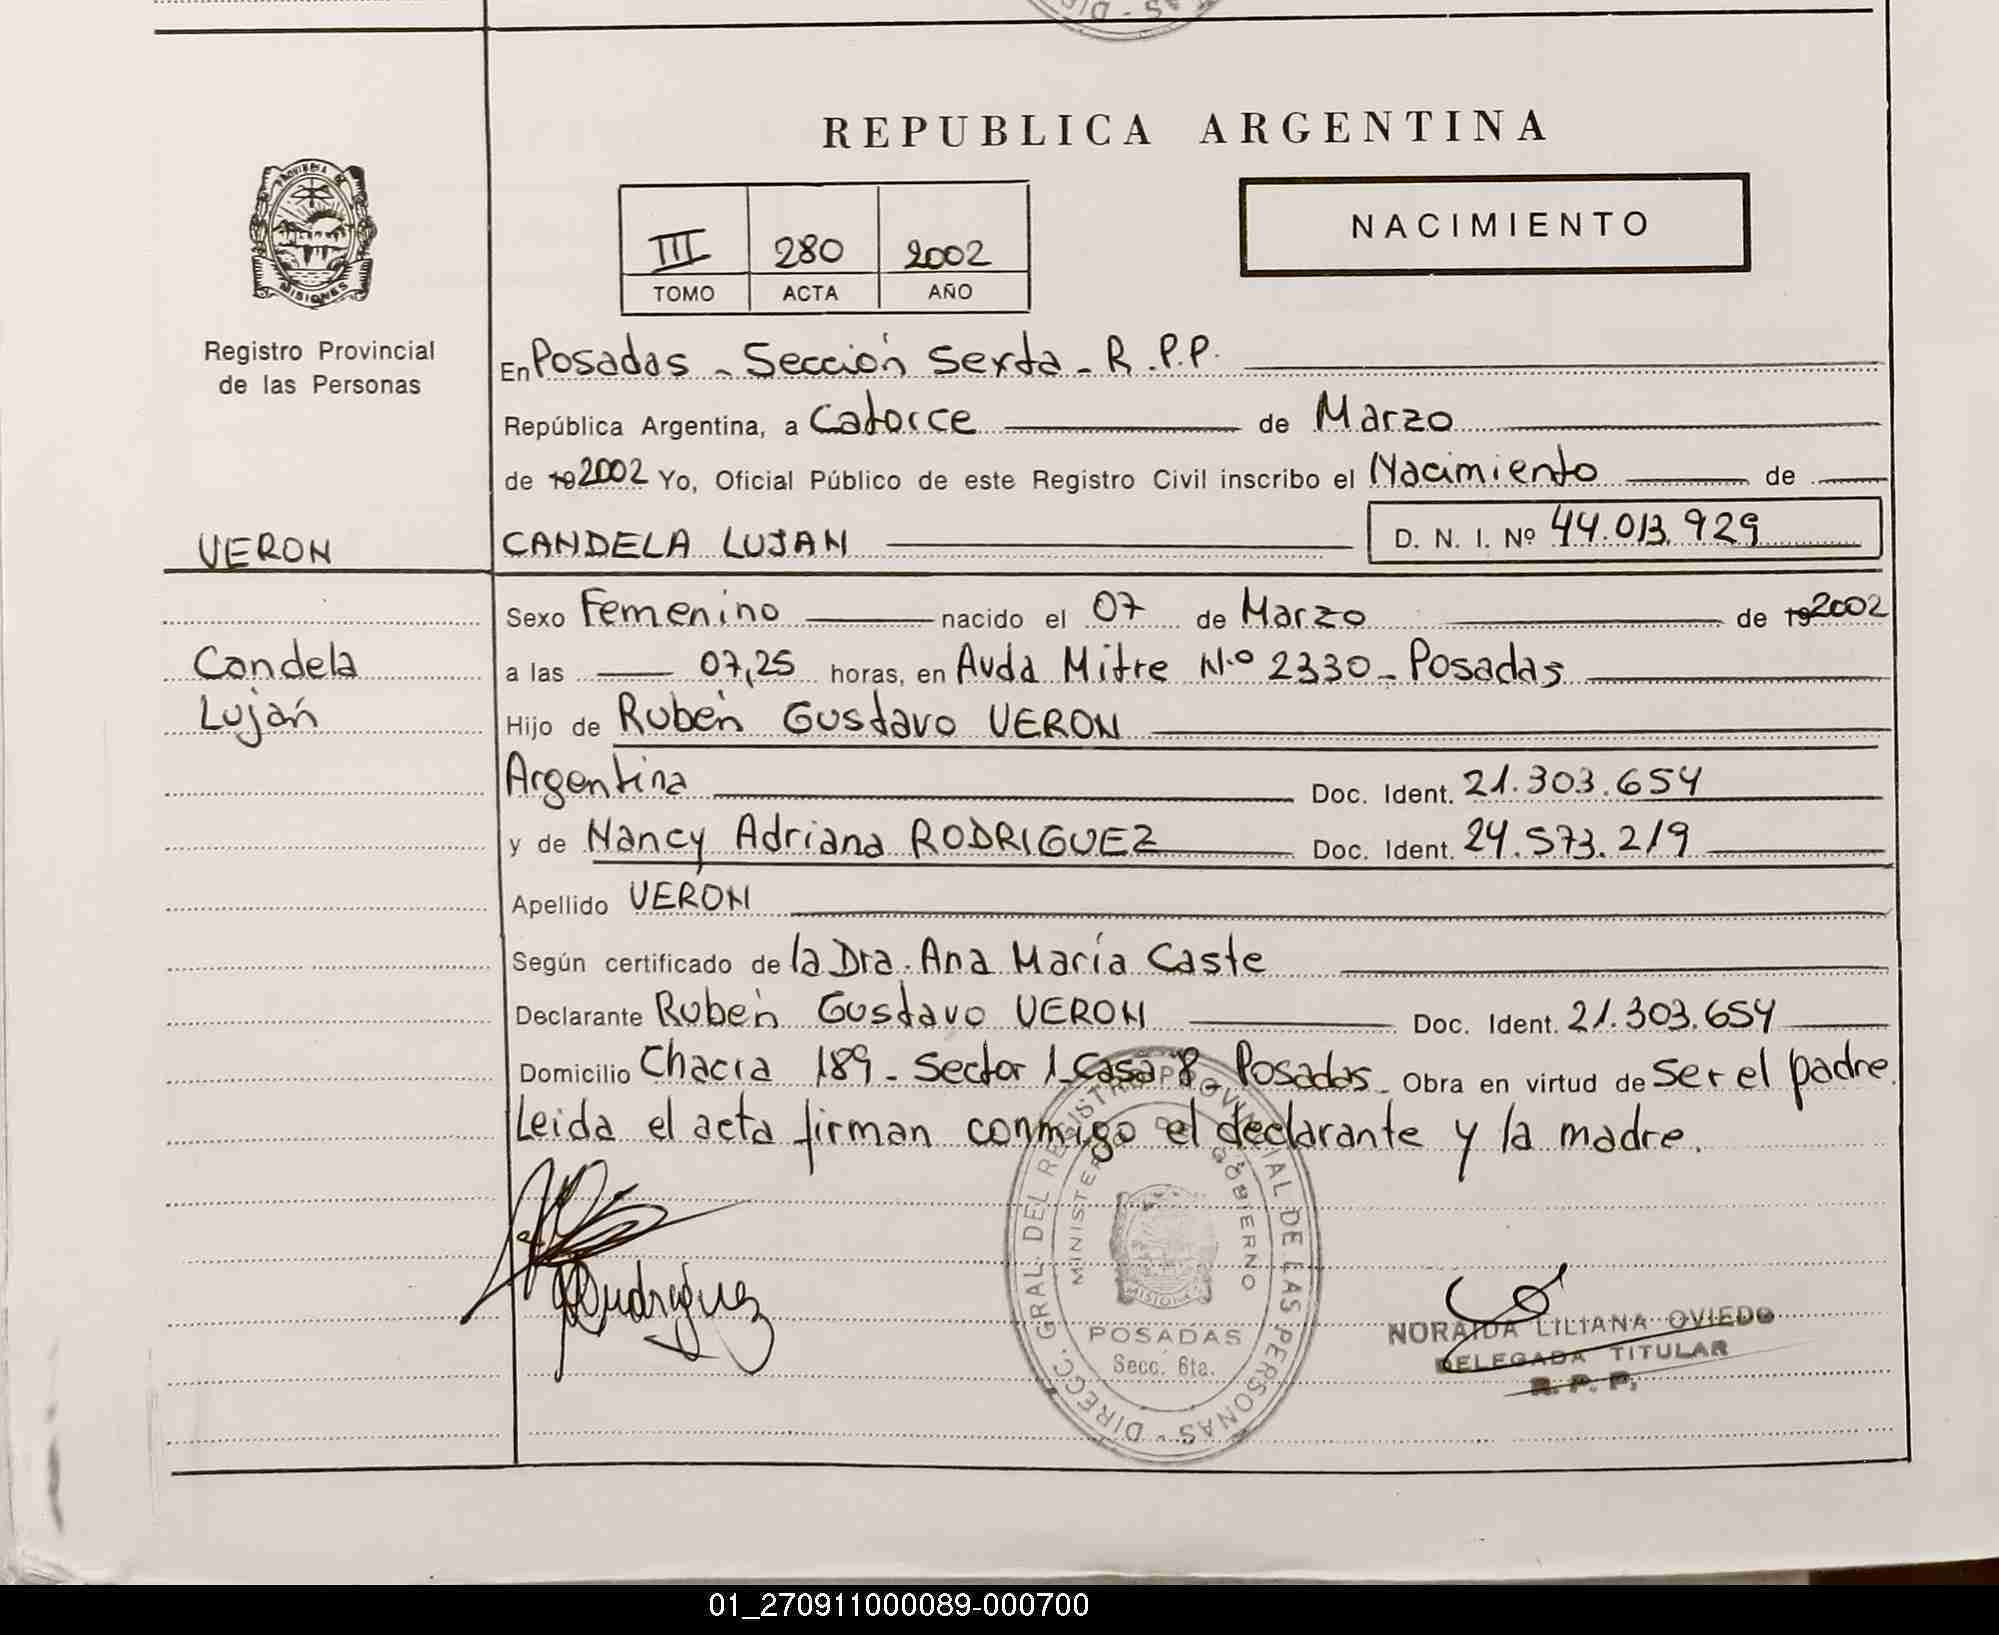 REPUBLICA ARGENTINA
PROVINCIA DE
MISIONES
Registro Provincial
de las Personas
III 280 2002
TOMO ACTA AÑO
NACIMIENTO
En Posadas - Sección Sexta - R.P.P.
República Argentina, a Catorce de Marzo
de 19 2002 Yo, Oficial Público de este Registro Civil inscribo el Nacimiento de
VERON
CANDELA LUJAN D. N. I. Nº 44.013.929
Candela
Luján
Sexo Femenino nacido el 07 de Marzo de 19 2002
a las 07,25 horas, en Avda Mitre N.º 2330 - Posadas
Hijo de Rubén Gustavo VERON
Argentina Doc. Ident. 21.303.654
y de Nancy Adriana RODRIGUEZ Doc. Ident. 24.573.219
Apellido VERON
Según certificado de la Dra. Ana María Caste
Declarante Rubén Gustavo VERON Doc. Ident. 21.303.654
Domicilio Chacra 189 - Sector 1 - Casa 8 - Posadas - Obra en virtud de ser el padre.
Leida el acta firman conmigo el declarante y la madre.
DIRECC. GRAL. DEL REGISTRO PROVINCIAL DE LAS PERSONAS -
MINISTERIO DE GOBIERNO
MISIONES
POSADAS
Secc. 6ta.
NORAIDA LILIANA OVIEDO
DELEGADA TITULAR
R. P. P.
01_270911000089-000700